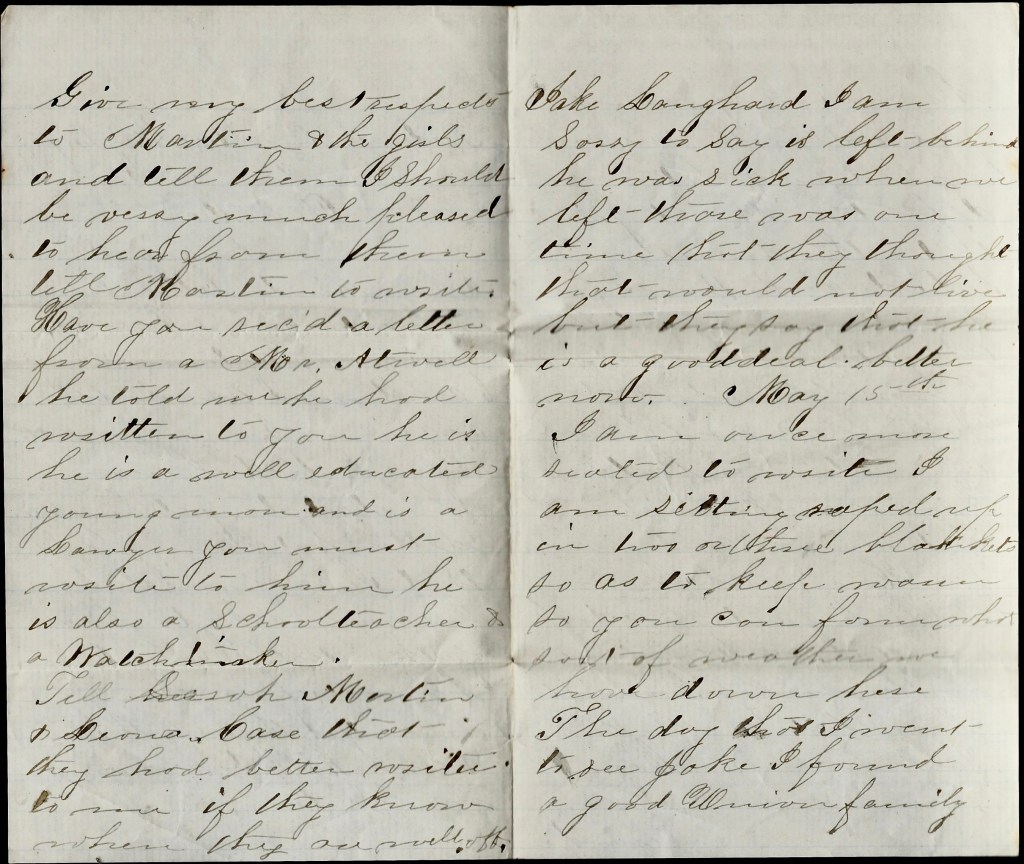 Give my best respects
to Martin & the girls
and tell them I Should
be very much pleased
to hear from them
tell Martin to write.
Have you rec'd a letter
from a Mr. Atwell
he told me he had
written to you he is
he is a well educated
young man and is a
Lawyer you must
write to him he
is also a Schoolteacher &
a Watchmaker.
Tell Martin
& Leona Case that
they had better write
to me if they know
when they are well off.
Jake Langhard I am
Sorry to Say is left behind
he was sick when we
left there was one
time that they thought
that would not live
but they say that he
is a good deal better
now. May 15th
I am once more
seated to write I
am sitting raped up
in two or three blankets
so as to keep warm
so you can form what
sort of weather we
have down here
The day that I went
to see Jake I found
a good Union family